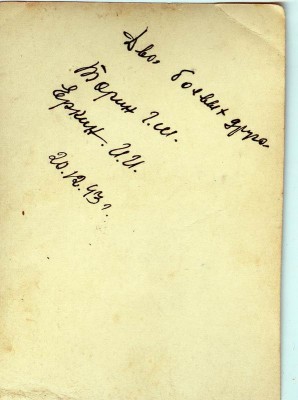 Два боевых друга
Торин Г.М.
Еркин. И.И.
20.12.43 г.